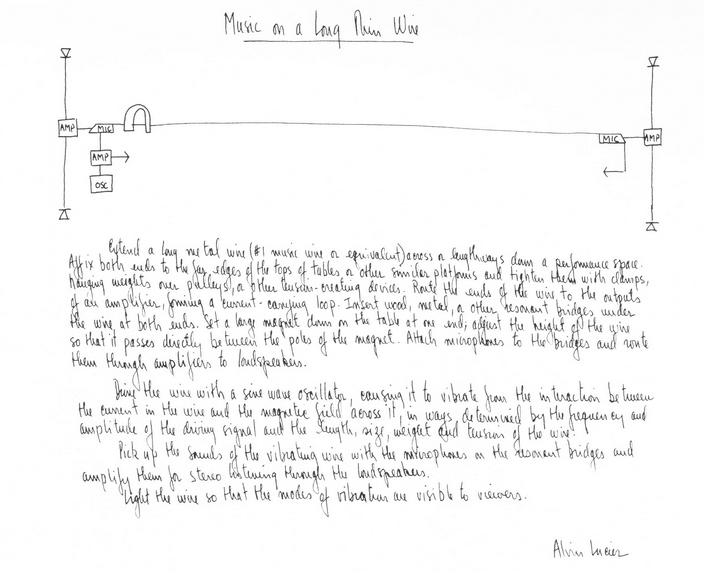 Music on a Long Thin Wire
AMP MIC MIC AMP
AMP
OSC
Extend a long metal wire (#1 music wire or equivalent) across or lengthways down a performance space.
Affix both ends to the far edges of the tops of tables or other similar platforms and tighten them with clamps,
hanging weights over pulleys, or other tension-creating devices. Route the ends of the wire to the outputs
of an amplifier, forming a current-carrying loop. Insert wood, metal, or other resonant bridges under
the wire at both ends. Set a large magnet down on the table at one end, adjust the height of the wire
so that it passes directly between the poles of the magnet. Attach microphones to the bridges and route
them through amplifiers to loudspeakers.
Drive the wire with a sine wave oscillator, causing it to vibrate from the interaction between
the current in the wire and the magnetic field across it, in ways determined by the frequency and
amplitude of the driving signal and the length, size, weight and tension of the wire.
Pick up the sounds of the vibrating wire with the microphones on the resonant bridges and
amplify them for stereo listening through the loudspeakers.
Light the wire so that the modes of vibration are visible to viewers.
Alvin Lucier